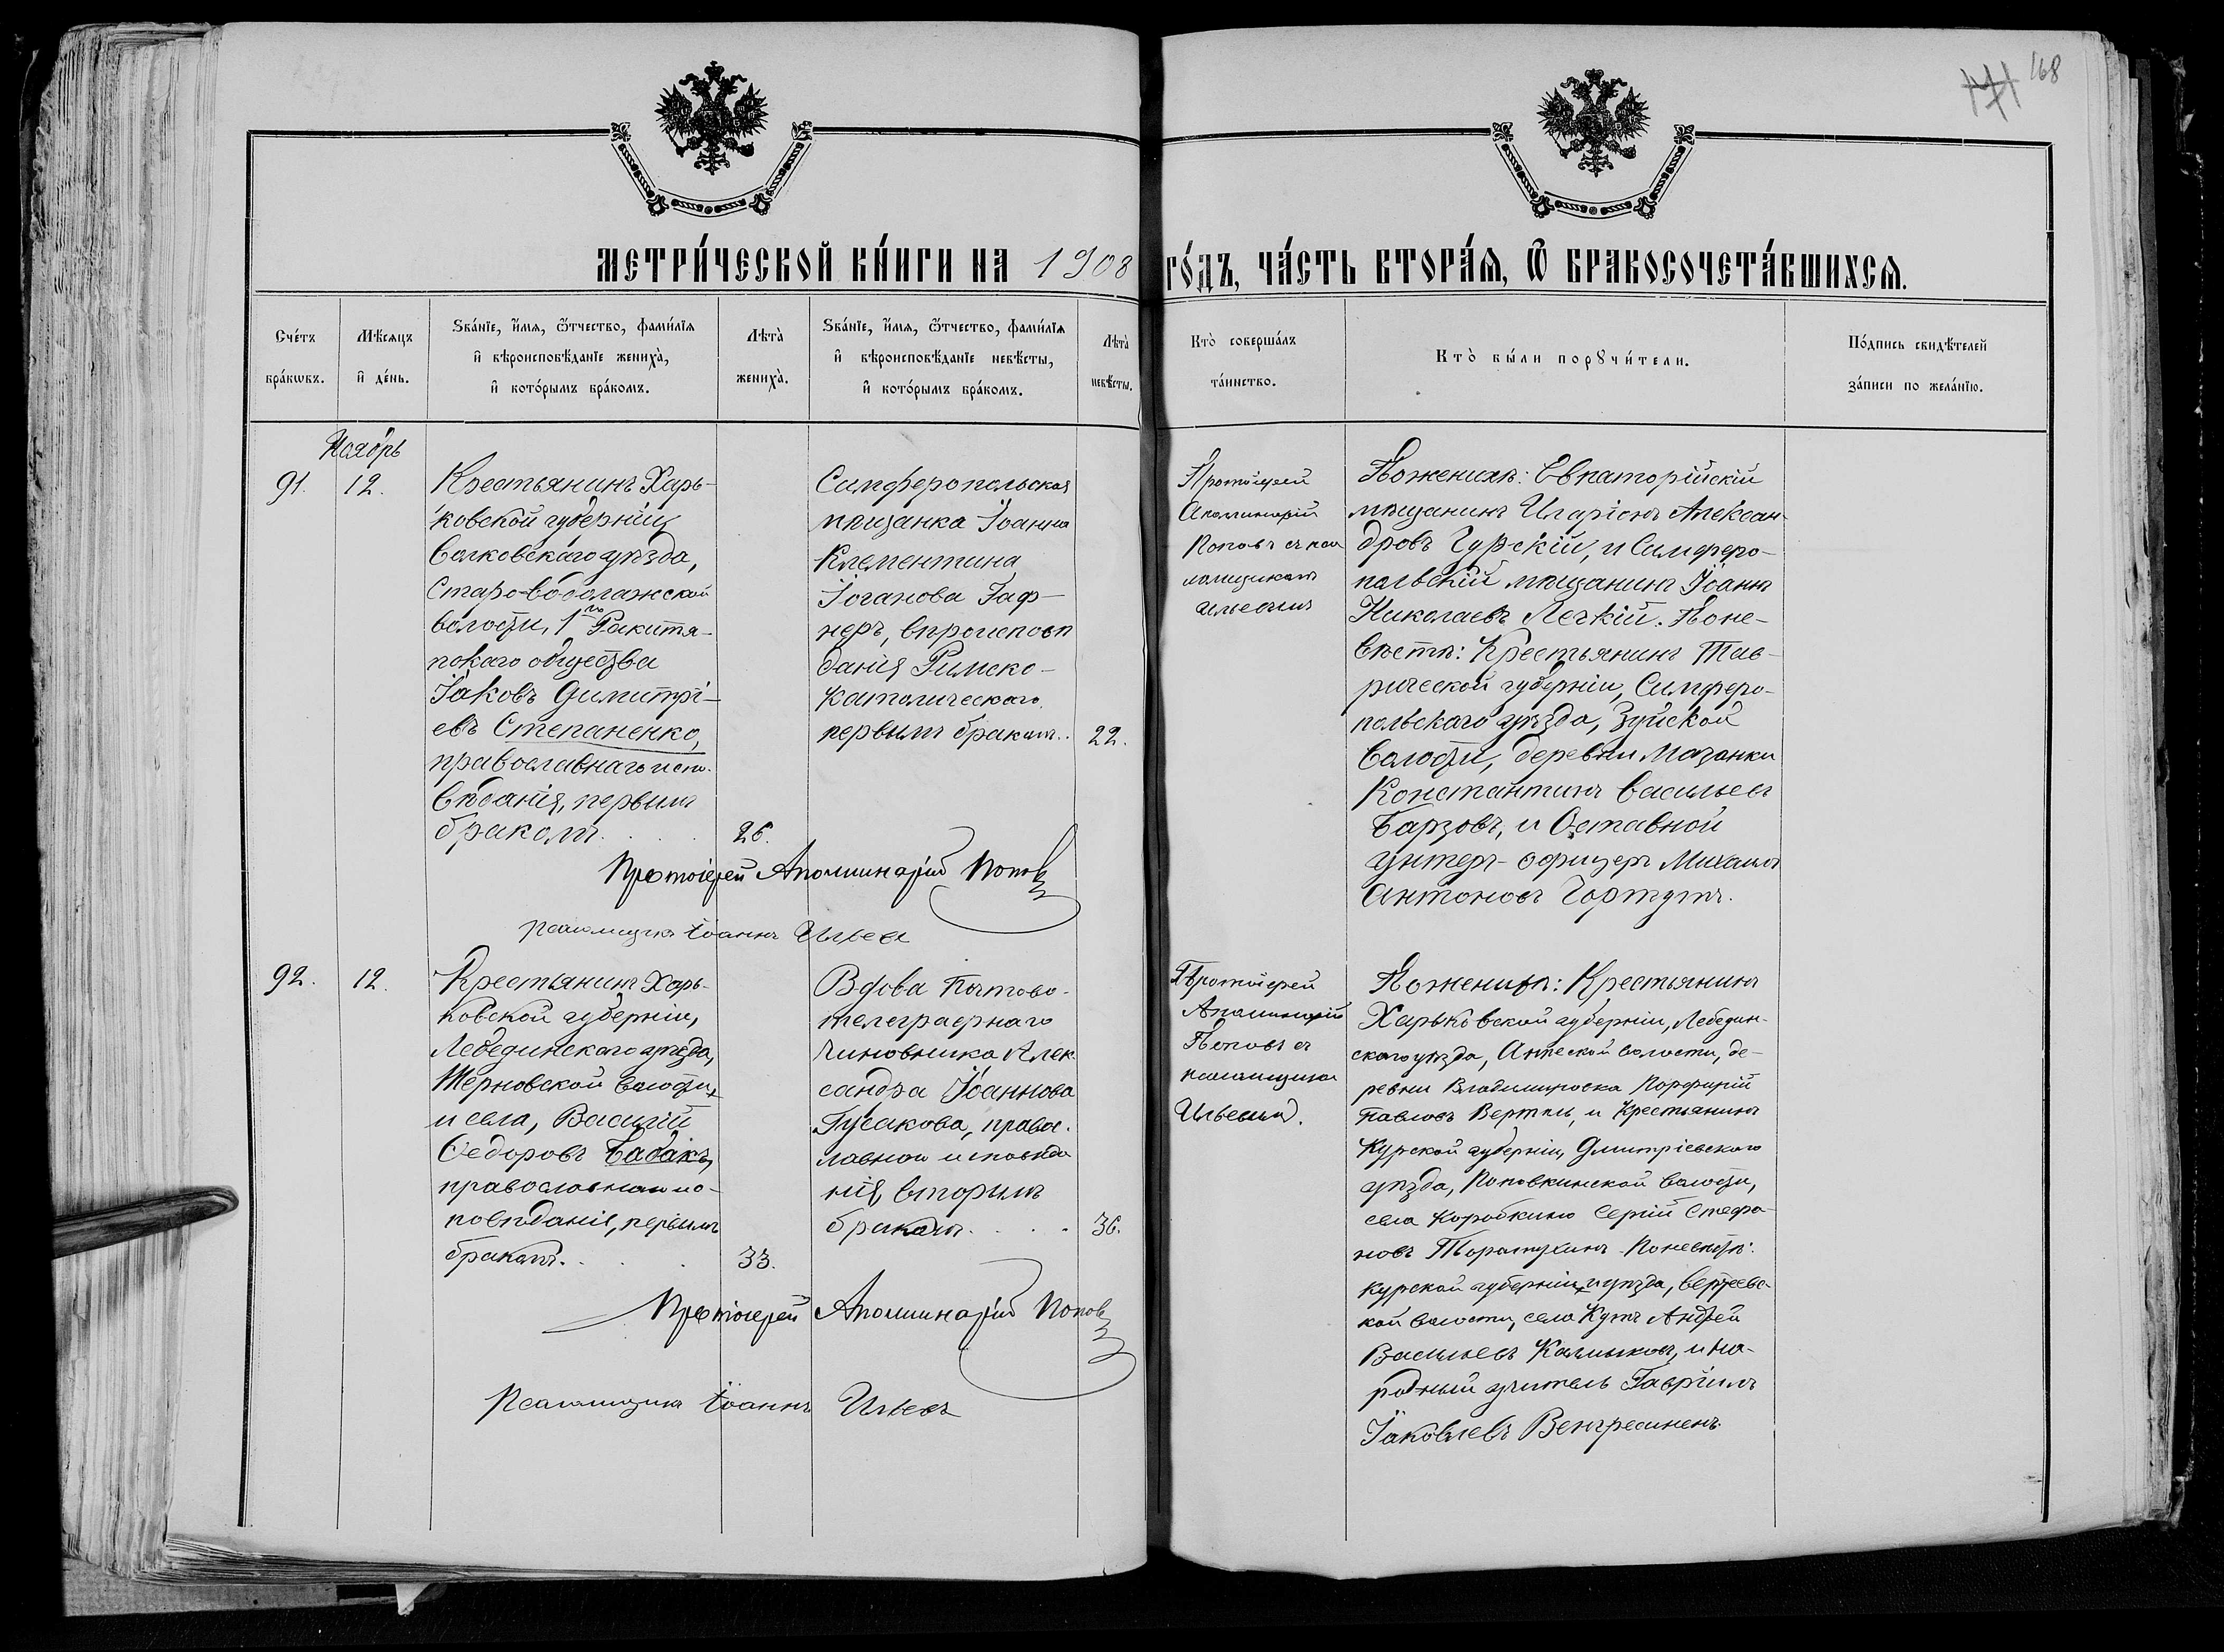 168
171
МЕТРИ́ЧЕСКОЙ КНИ́ГИ НА 1908 ГО́ДЪ, ЧА́СТЬ ВТОРА́Я, Ѿ БРАКОСОЧЕТА́ВШИХСЯ.
Сче́тъ бра́кѡвъ.
Мѣ́сяцъ и҆ де́нь.
Ѕва́нїе, и҆́мя, ѻ҆́тчество, фами́лїя
и҆ вѣроисповѣ́данїе жениха̀,
и҆ кото́рымъ бра́комъ.
Лѣта̀ жениха̀.
Ѕва́нїе, и҆́мя, ѻ҆́тчество, фами́лїя
и҆ вѣроисповѣ́данїе невѣ́сты,
и҆ кото́рымъ бра́комъ.
Лѣта̀ невѣ́сты.
Кто̀ соверша́лъ
та́инство.
Кто̀ бы́ли порꙋчи́тели.
По́дпись свидѣ́телей
за́писи по жела́нїю.
Ноябрь
91.
12.
Крестьянинъ Харь-
ковской губерніи
Валковскаго уѣзда,
Старо-Водолажской
волости, 1го Ракитя-
нскаго общества
Іаковъ Димитрі-
евъ Степаненко,
православнаго испо-
вѣданія, первымъ
бракомъ . . .
26.
Симферопольская
мѣщанка Іоанна
Клементина
Іоганова Гаф-
неръ, вѣроисповѣ
данія Римско-
Католическаго
первымъ бракомъ . .
22.
Протоіерей
Аполинарій
Поповъ съ пса
ломщикомъ
Ильевымъ
По женихѣ: Евпаторійскій
мѣщанинъ Иларіонъ Алексан-
дровъ Гурскій, и Симферо-
польскій мѣщанинъ Іоаннъ
Николаевъ Легкій. По не-
вѣстѣ: Крестьянинъ Тав-
рической губерніи, Симферо-
польскаго уѣзда, Зуйской
волости, деревни Мазанки
Константинъ Васильевъ
Барзовъ, и Отставной
унтеръ-офицеръ Михаилъ
Антоновъ Гортутъ.
Протоіерей Аполлинарій Поповъ
Псаломщикъ Іоаннъ Ильевъ
92.
12.
Крестьянинъ Харь-
ковской губерніи,
Лебединскаго уѣзда,
Терновской волости
и села, Василій
Ѳедоровъ Бабакъ,
православнаго ис-
повѣданія, первымъ
бракомъ. . . .
33.
Вдова Почтово-
телеграфнаго
чиновника Алек-
сандра Іоаннова
Гусакова, правос-
лавнаго исповѣда
нія, вторымъ
бракомъ. . . .
36.
Протоіерей
Аполинарій
Поповъ съ
псаломщикомъ
Ильевымъ.
По женихѣ: Крестьянинъ
Харьковской губерніи, Лебедин-
скаго уѣзда, волости, де-
ревни Владимировка Порфирій
Павловъ и Крестьянинъ
Курской губерніи, Дмитріевскаго
уѣзда, Поповкинской волости,
села Коробкино Сергій Стефа-
новъ По невѣстѣ:
Курской губерніи и уѣзда,
кой волости, села Андрей
Васильевъ Калмыковъ, и на-
родный учитель Гавріилъ
Іаковлевъ
Протоіерей Аполлинарій Поповъ
Псаломщикъ Іоаннъ Ильевъ